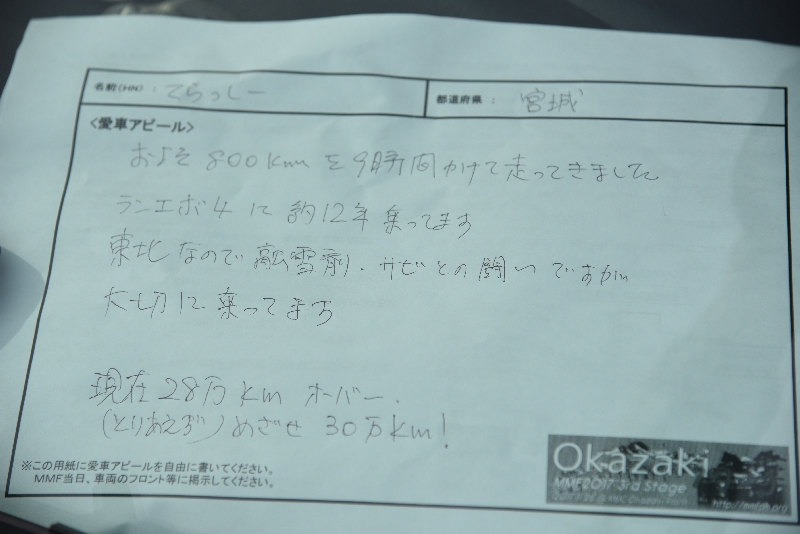 名前(HN)： てらっしー
都道府県： 宮城
<愛車アピール>
およそ 800km を 9時間かけて走ってきました
ランエボ4に 約12年 乗ってます
東北なので 融雪剤・サビとの闘いですが
大切に 乗ってます
現在 28万km オーバー.
(とりあえず) めざせ 30万km!
※この用紙に愛車アピールを自由に書いてください。
MMF当日、車両のフロント等に掲示してください。
Okazaki
MMF2017 3rd Stage